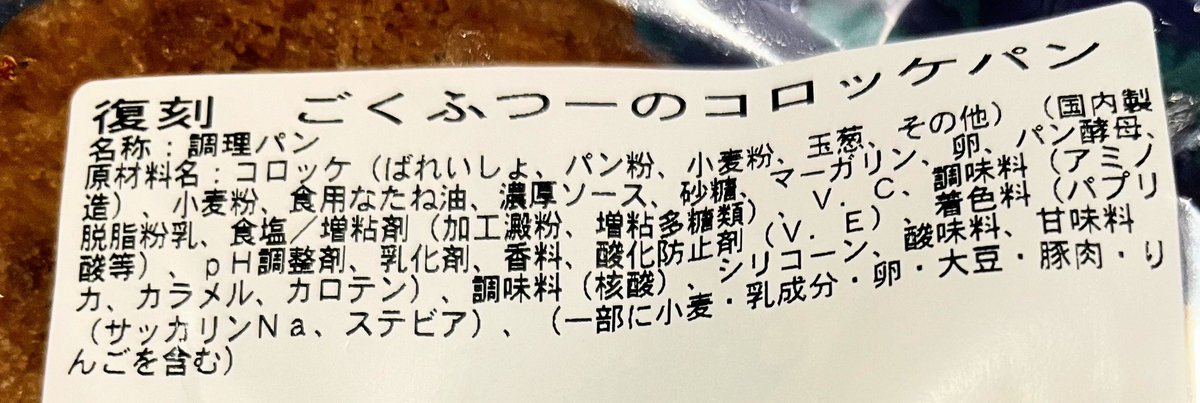 復刻　ごくふつーのコロッケパン
名称：調理パン
原材料名：コロッケ（ばれいしょ、パン粉、小麦粉、玉葱、その他）（国内製
造）、小麦粉、食用なたね油、濃厚ソース、砂糖、マーガリン、卵、パン酵母、
脱脂粉乳、食塩／増粘剤（加工澱粉、増粘多糖類）、Ｖ．Ｃ、調味料（アミノ
酸等）、ｐＨ調整剤、乳化剤、香料、酸化防止剤（Ｖ．Ｅ）、着色料（パプリ
カ、カラメル、カロテン）、調味料（核酸）、シリコーン、酸味料、甘味料
（サッカリンＮａ、ステビア）、（一部に小麦・乳成分・卵・大豆・豚肉・り
んごを含む）